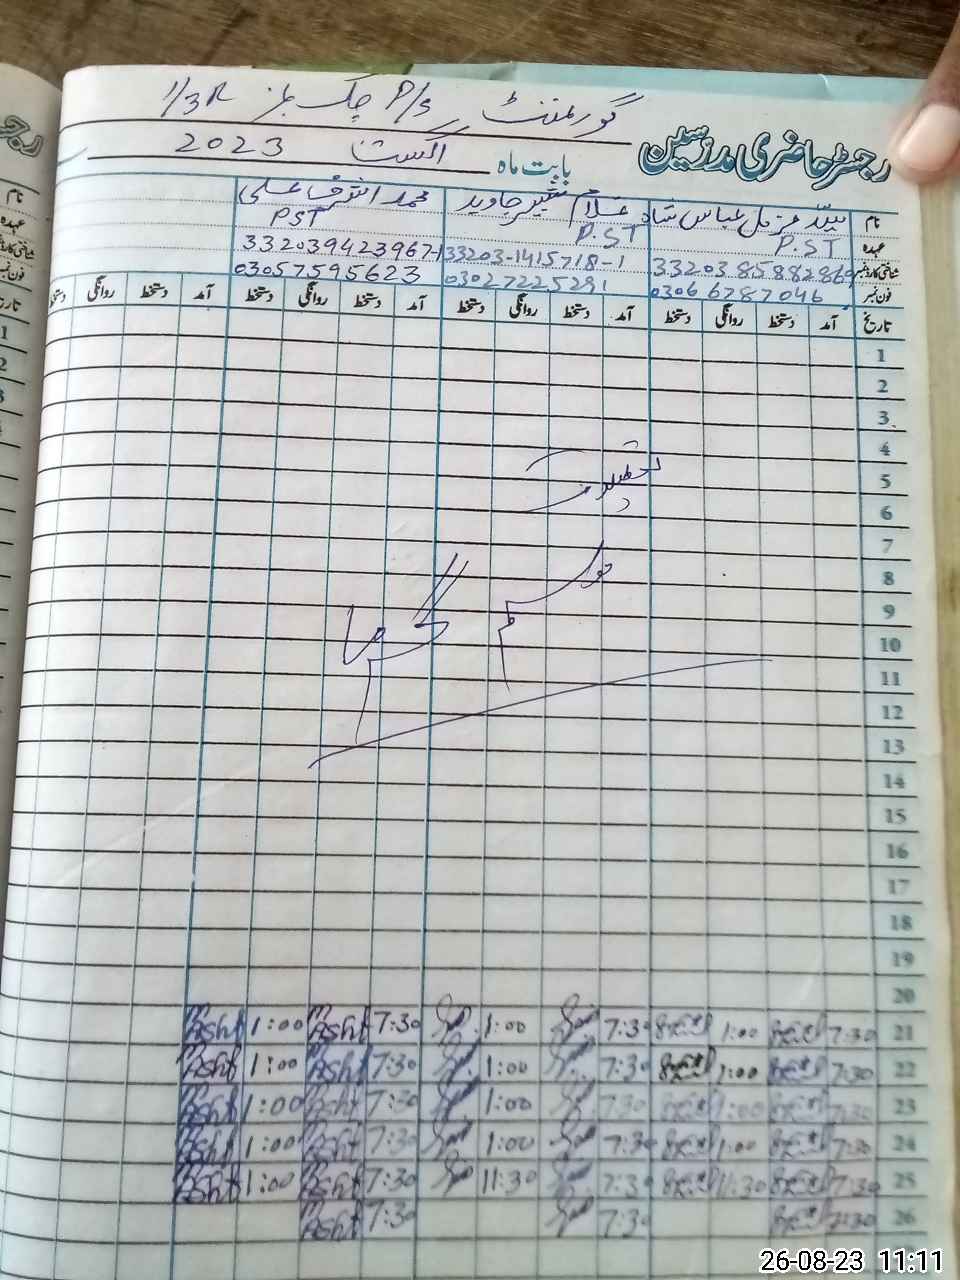 گورنمنٹ P/S چک نمبر 1/3R
رجسٹر حاضری مدرسین
بابت ماہ اگست 2023
نام سید مزمل عباس شاہ غلام صغیر جاوید محمد اشرف علی
عہدہ P.ST P.ST PST
شناختی کارڈ نمبر 33203-1415718-1 332039423967-1
فون نمبر 03066787046 03027225291 03057595623
تاریخ آمد دستخط روانگی دستخط آمد دستخط روانگی دستخط آمد دستخط روانگی دستخط آمد دستخط روانگی دستخط
1
2
3
4
5
6
7
8
9
10
11
12
13
14
15
16
17
18
19
20
21 7:30 1:00 7:30 1:00 7:30 Ashf 1:00 Ashf
22 7:30 1:00 7:30 1:00 7:30 Ashf 1:00 Ashf
23 7:30 1:00 730 1:00 7:30 Ashf 1:00 Ashf
24 7:30 1:00 7:30 1:00 7:30 Ashf 1:00 Ashf
25 7:30 11:30 7:30 11:30 7:30 Ashf 1:00 Ashf
26 7:30 7:30 7:30 Ashf
تعطیلات
موسم گرما
26-08-23 11:11